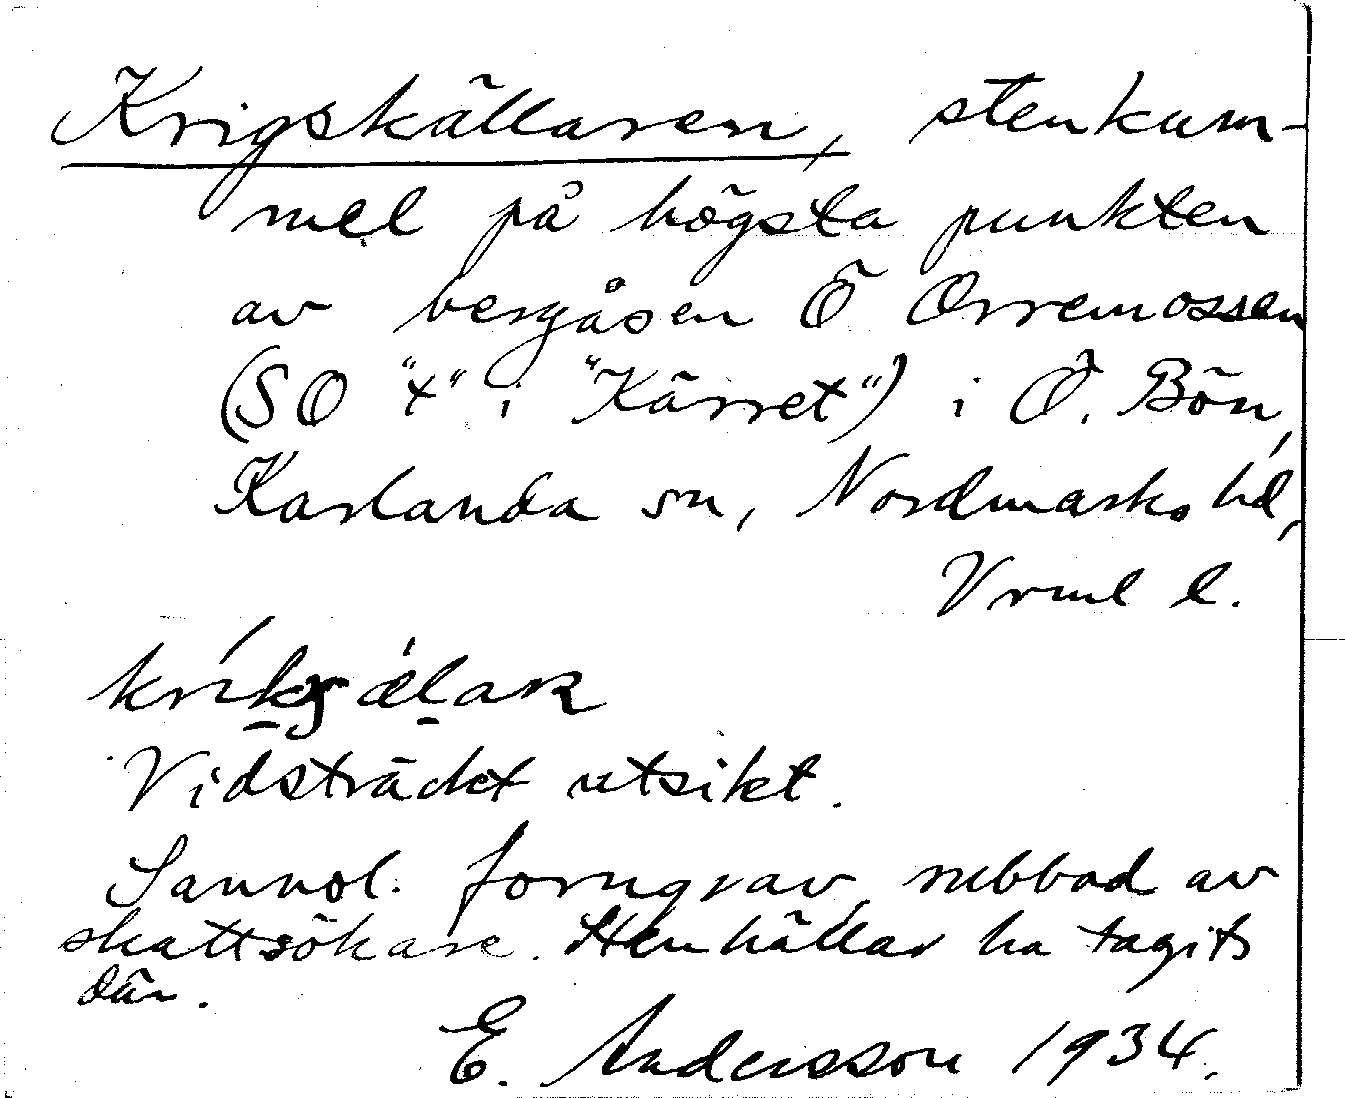 Krigskällaren, stenkum-
mel på högsta punkten
av bergåsen Ö Orremossen
(SO "t" i "Kärret") i Ö. Bön,
Karlanda sn, Nordmarks hd,
Vrml l.
Vidsträckt utsikt.
Sannol. forngrav, rubbad av
skattsökare. Stenhällar ha tagits
där.
E. Andersson 1934.